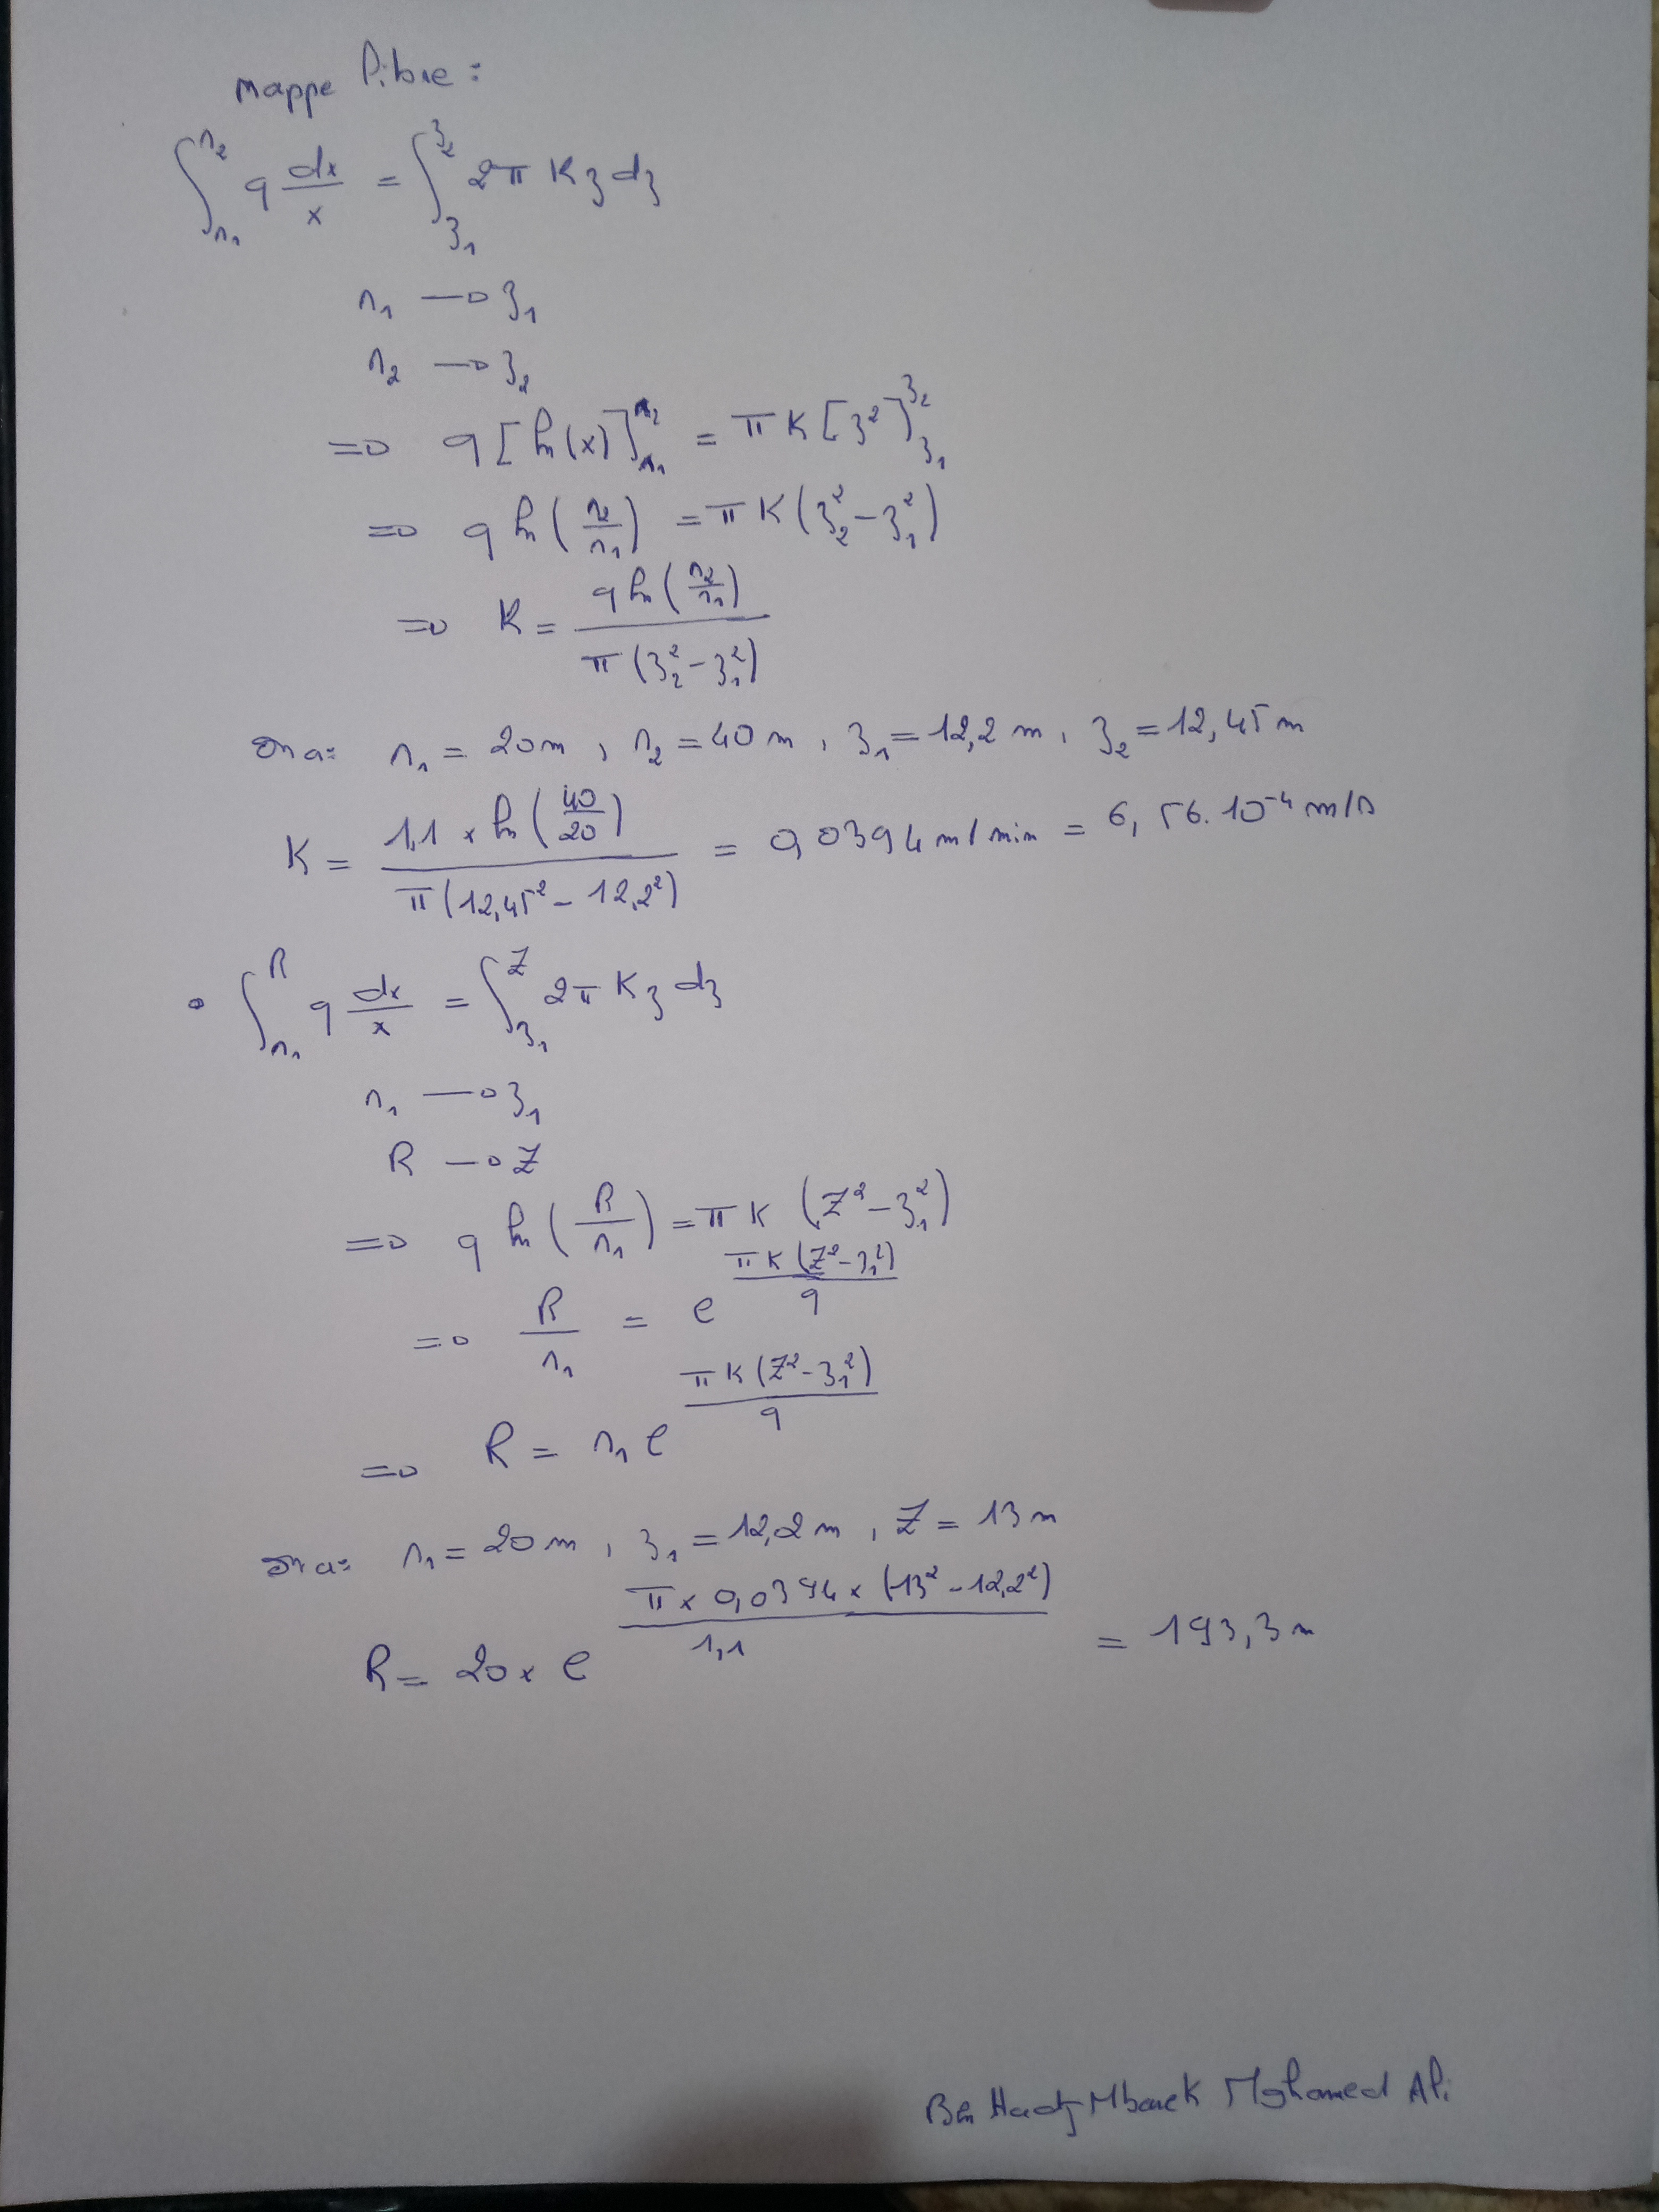 Nappe libre :
∫_{r₁}^{r₂} q dx/x = ∫_{z₁}^{z₂} 2π K z dz
r₁ → z₁
r₂ → z₂
⇒ q [ln(x)]_{r₁}^{r₂} = π K [z²]_{z₁}^{z₂}
⇒ q ln(r₂/r₁) = π K (z₂² - z₁²)
⇒ K = q ln(r₂/r₁) / π (z₂² - z₁²)
On a: r₁ = 20 m, r₂ = 40 m, z₁ = 12,2 m, z₂ = 12,45 m
K = 1,1 × ln(40/20) / π(12,45² - 12,2²) = 0,0394 m/min = 6,56.10⁻⁴ m/s
• ∫_{r₁}^{R} q dx/x = ∫_{z₁}^{Z} 2π K z dz
r₁ → z₁
R → Z
⇒ q ln(R/r₁) = π K (Z² - z₁²)
⇒ R/r₁ = e^{π K (Z² - z₁²)/q}
⇒ R = r₁ e^{π K (Z² - z₁²)/q}
On a: r₁ = 20 m, z₁ = 12,2 m, Z = 13 m
R = 20 × e^{π × 0,0394 × (13² - 12,2²)/1,1} = 193,3 m
Ben Hadj Mbarek Mohamed Ali